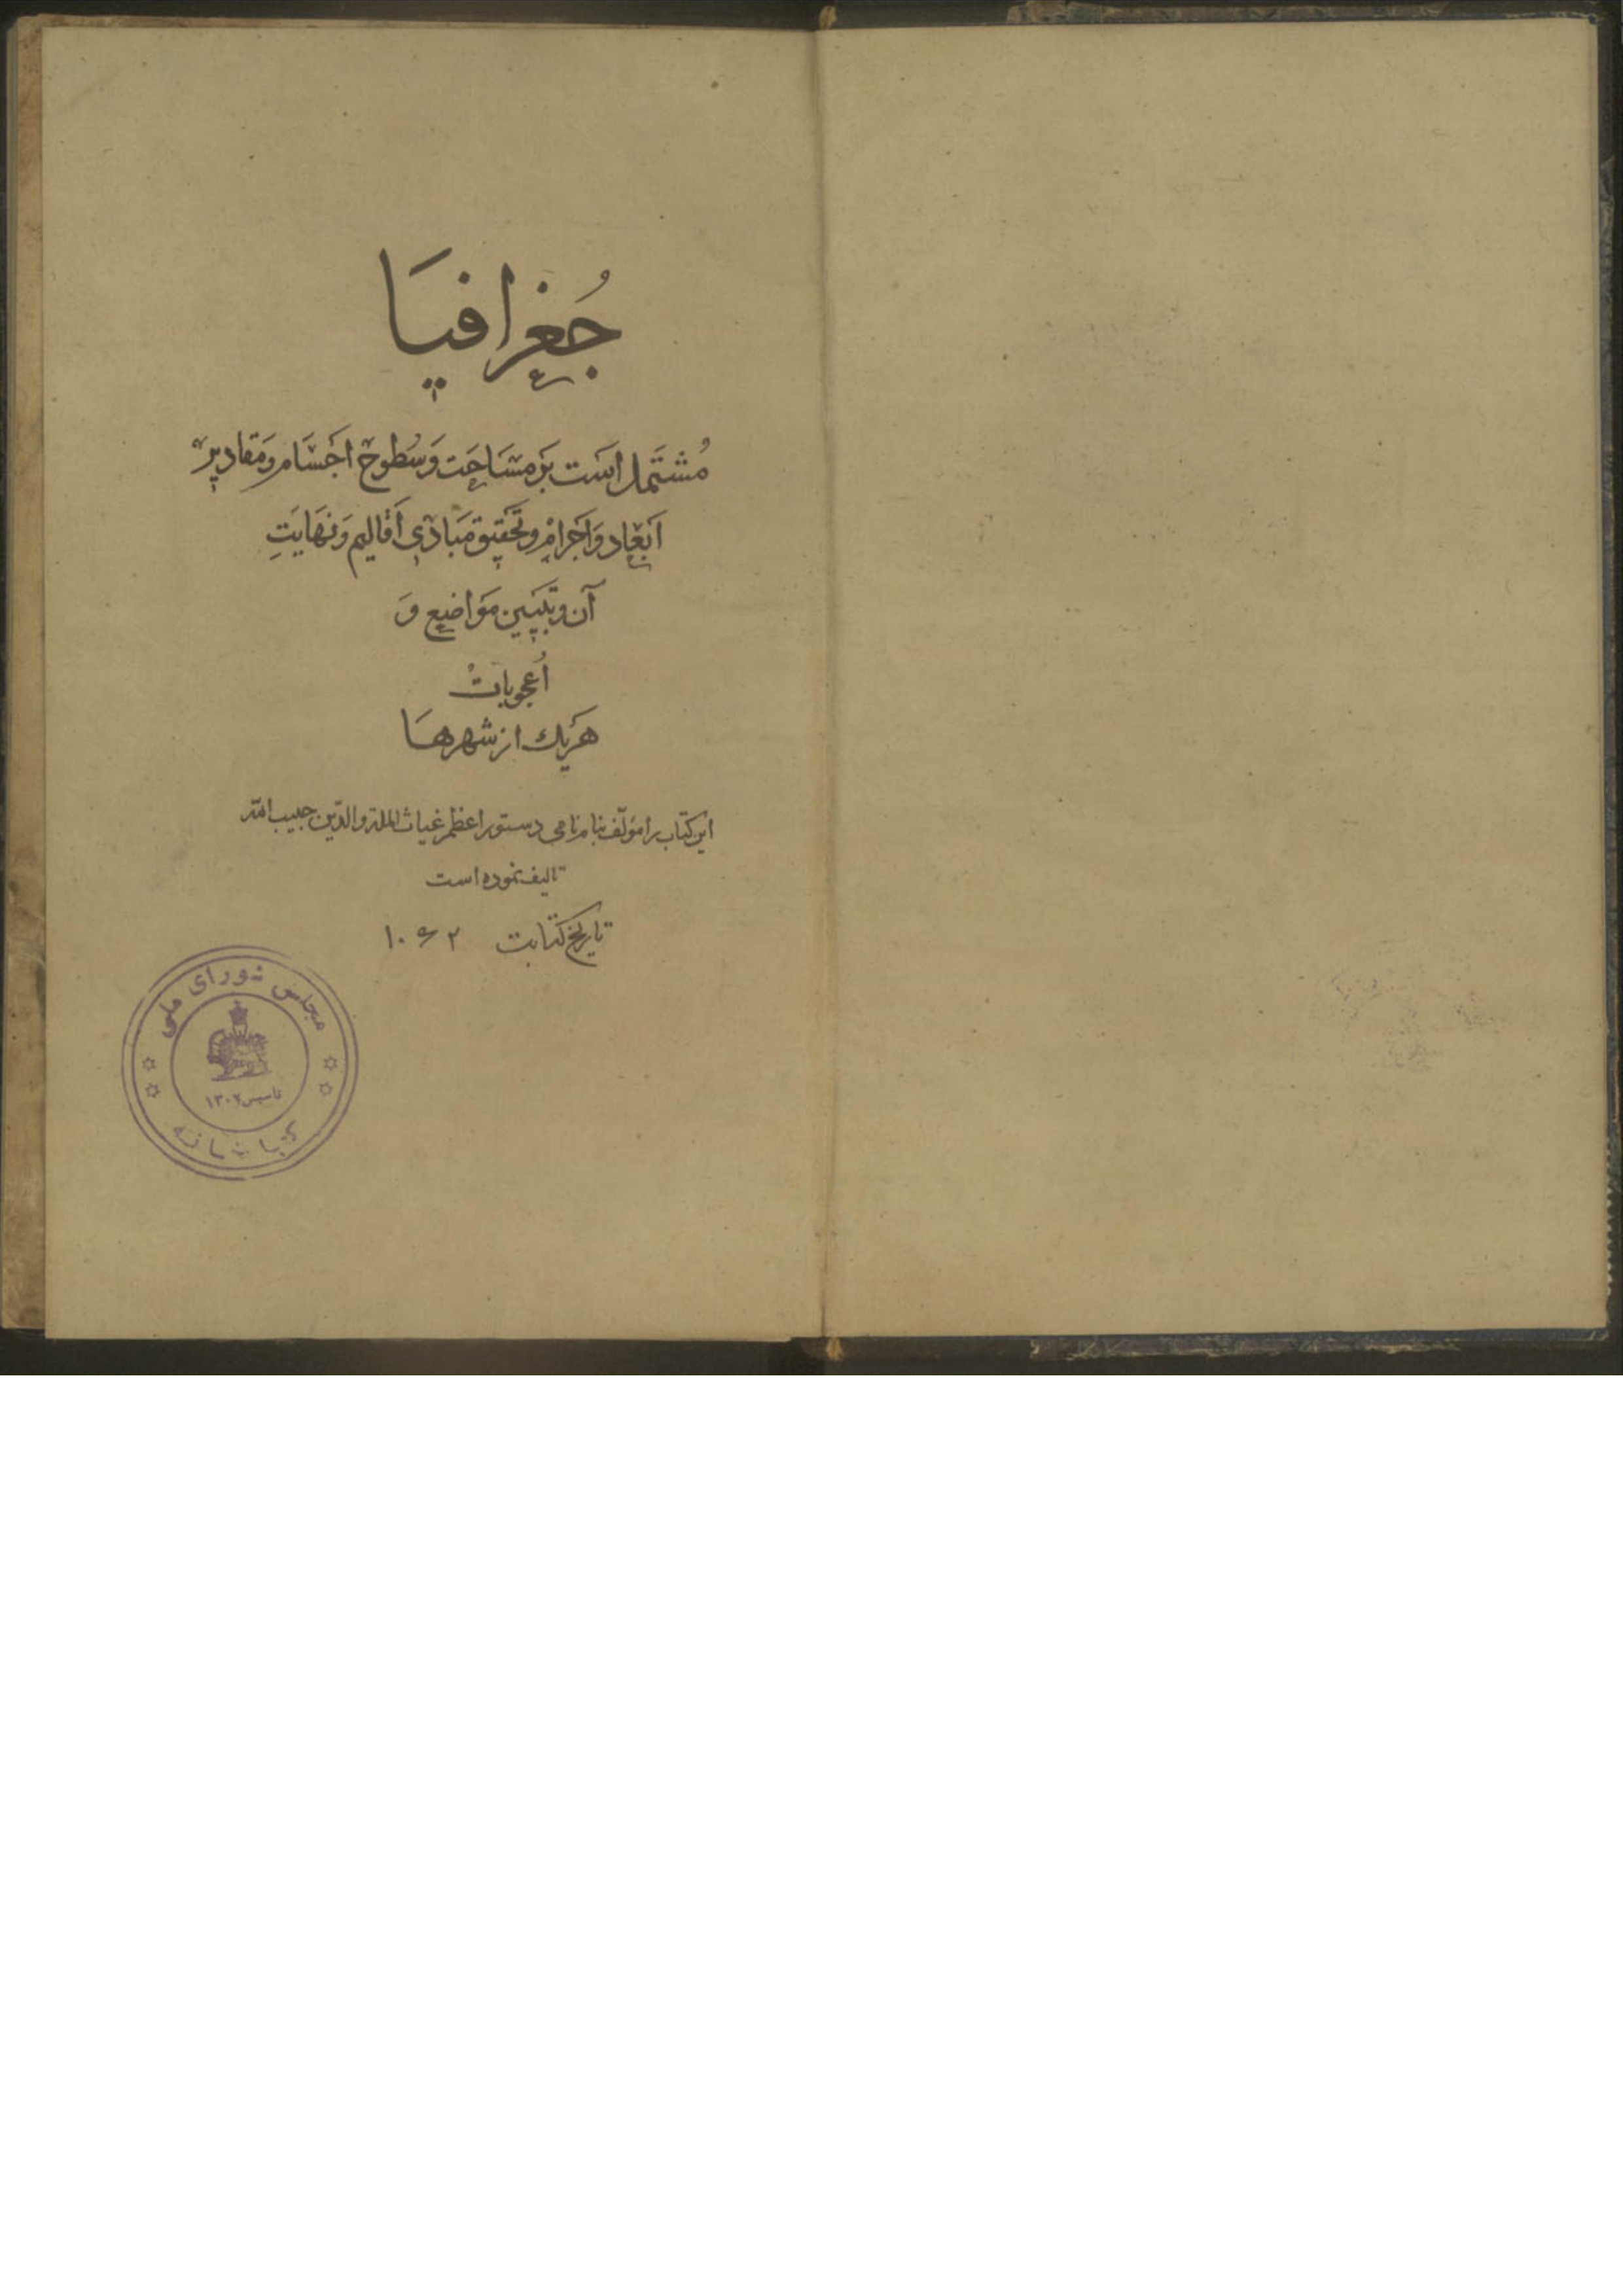 جُغرافيَا
مُشتَمل است بَر مسَاحَت وَسُطوح اجسَام وَمقادير
اَبعاد وَاَجرامْ وتحَقيق مَبادى اَقاليم وَنهَايَتِ
آن وتبَيين مَواضِع وَ
اُعجوباتْ
هَريك از شهرهَا
اين كتاب را مؤلّف بنام نامى دستور اعظم غياث الملة والدّين حبيب الله
تاليف نموده است
تاريخ كتابت
مجلس شورای ملی
تاسيس ۱۳۰۲
کتابخانه